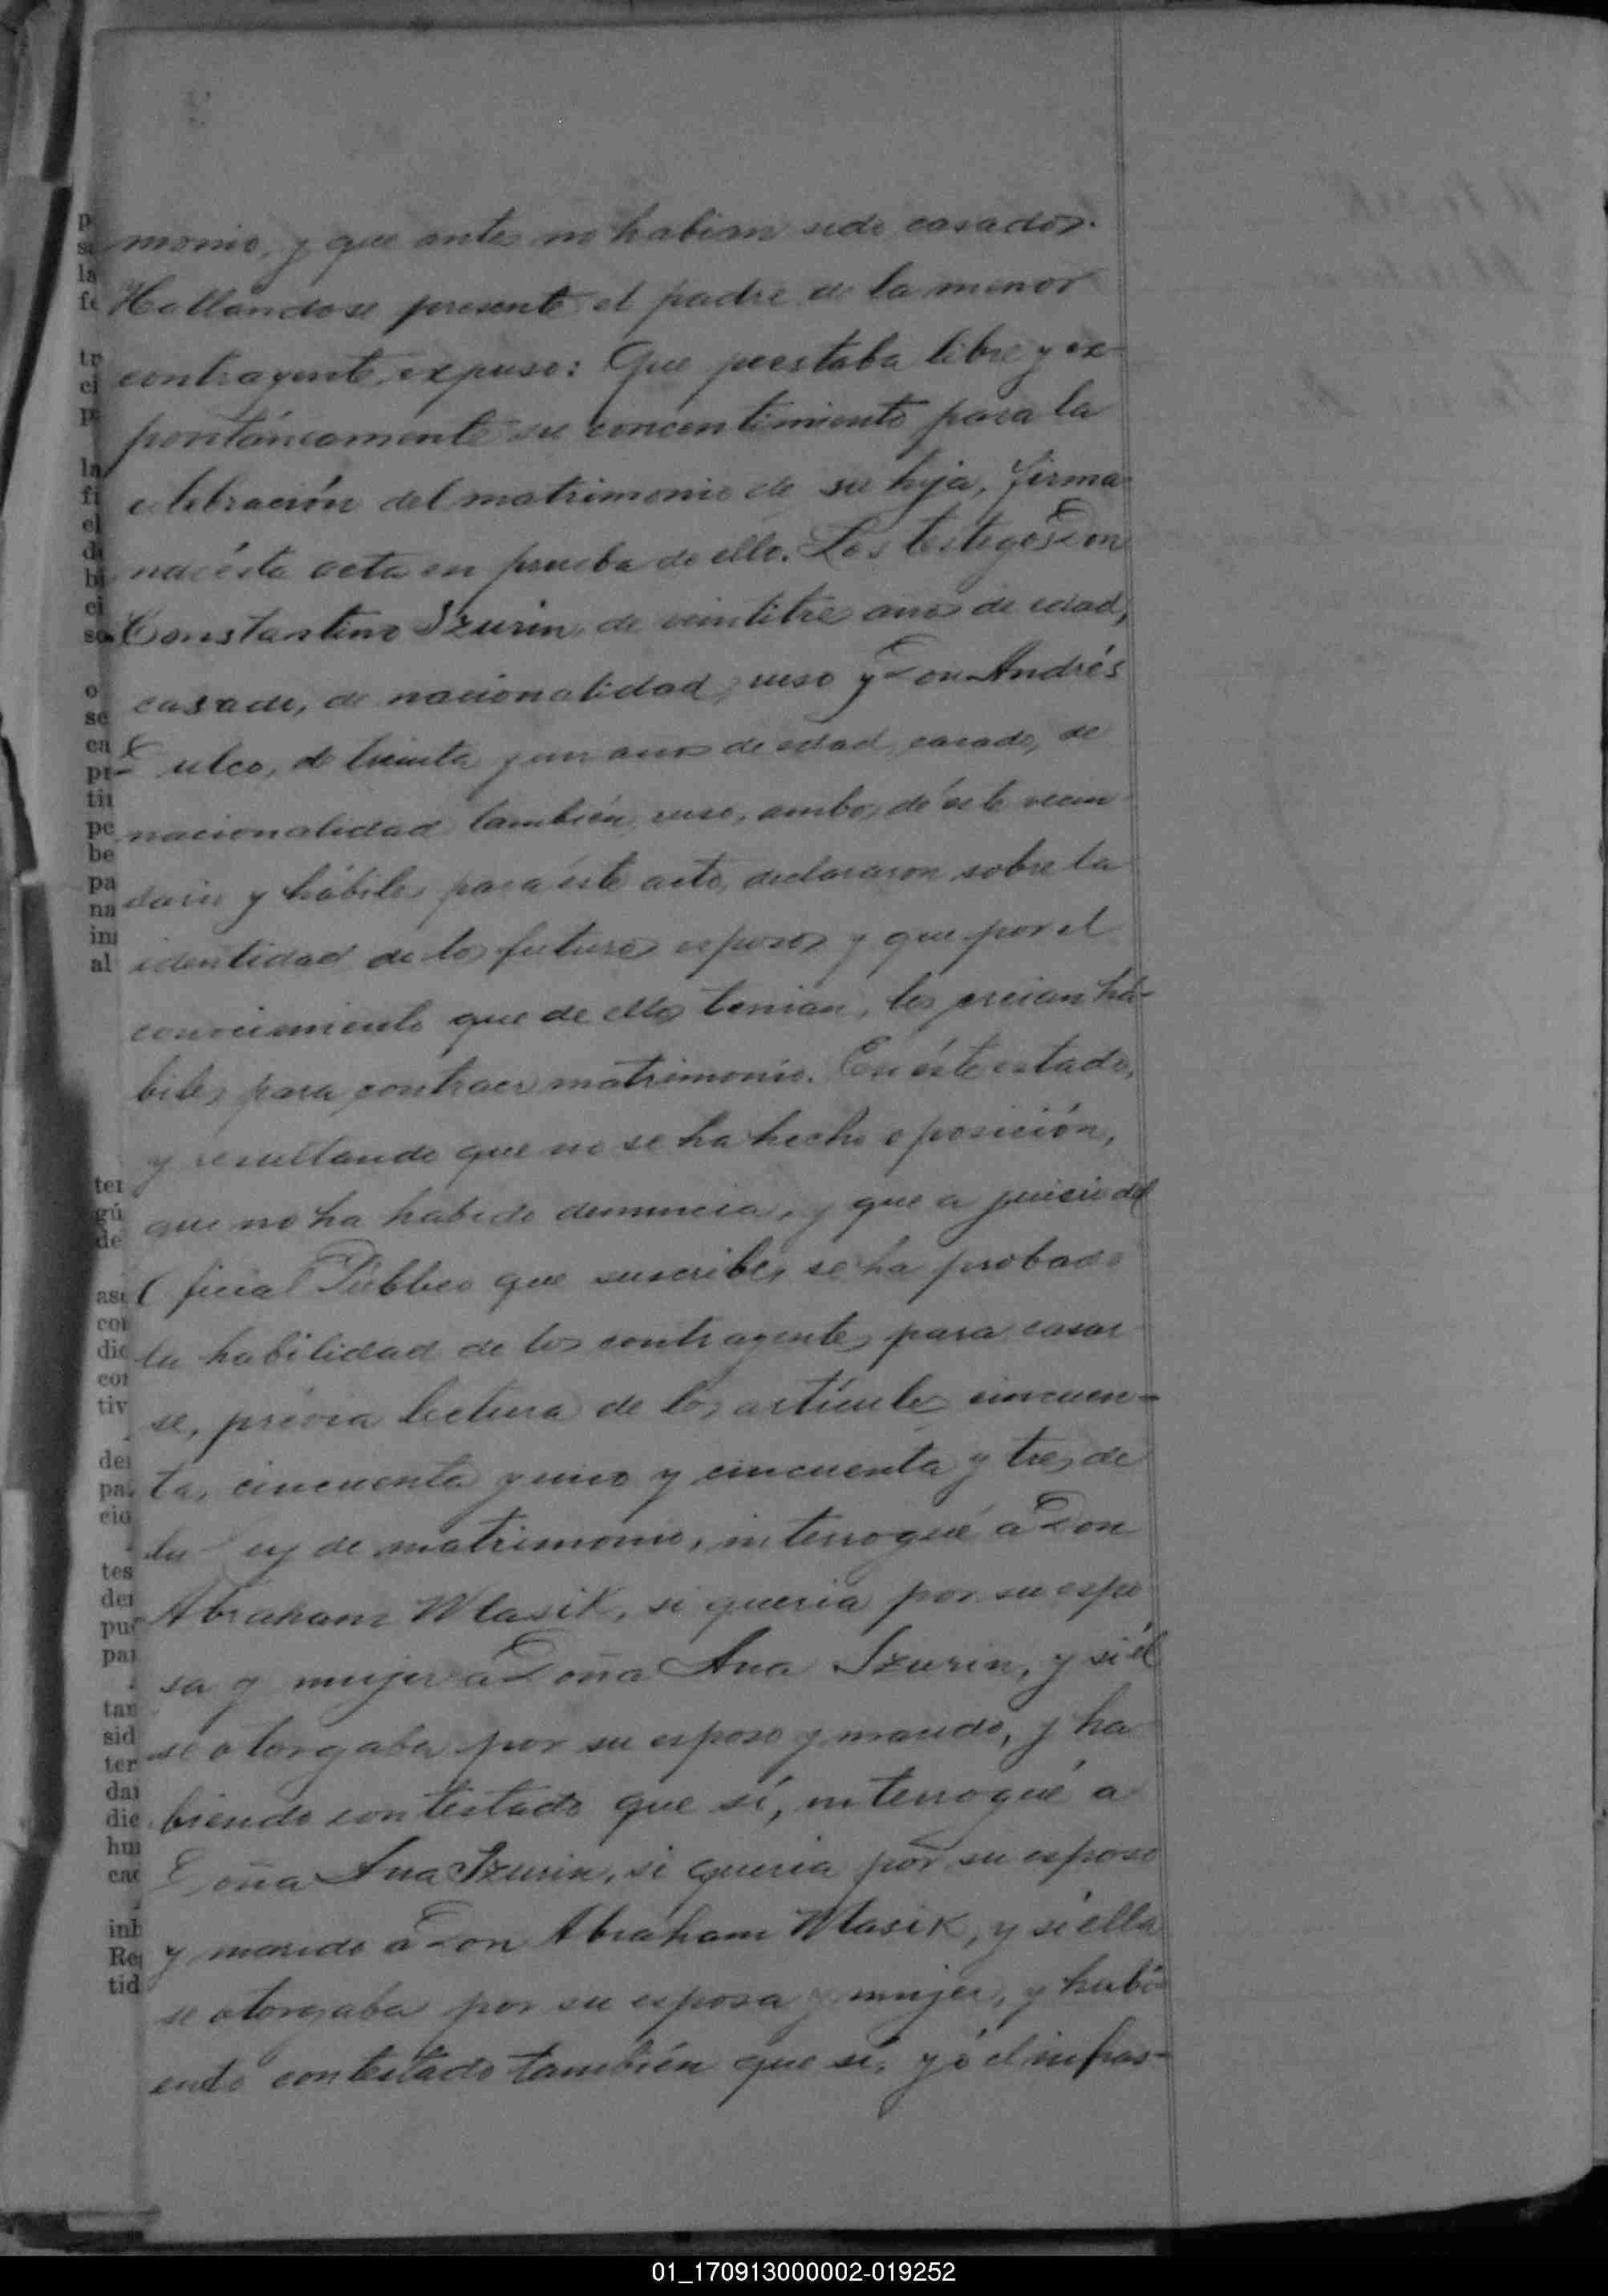 monio, y que antes no habian sido casados.
Hallandose presente el padre de la menor
contrayente, expuso: Que prestaba libre y ex-
pontáneamente su concentimiento para la
celebración del matrimonio de su hija, firma
ndo ésta acta en prueba de ello. Los testigos Don
Constantino Szurin, de veintitres anos de edad,
casado, de nacionalidad ruso y Don Andrés
de treinta y un anos de edad, casado, de
nacionalidad también ruso, ambos de éste vecin
dario y hábiles para éste acto, declararon sobre la
identidad de los futuros esposos y que por el
conocimiento que de ellos tenian, los creian há-
biles para contraer matrimonio. En éste estado,
y resultando que no se ha hecho oposición,
que no ha habido denuncia, y que a juicio del
Oficial Público que suscribe, se ha probado
la habilidad de los contrayentes para casar
se, prévia lectura de los artículos cincuen-
ta, cincuenta y uno y cincuenta y tres de
la Ley de matrimonio, interrogué á Don
Abraham Wlasik, si queria por su espo
sa y mujer á Doña Ana Szurin, y si él
se otorgaba por su esposo y marido, y ha
biendo contestado que sí, interrogué a
Doña Ana Szurin, si queria por su esposo
y marido á Don Abraham Wlasik, y si ella
se otorgaba por su esposa y mujer, y habi-
endo contestado también que sí, yó el infras-
p
la
tr
p
la
fi
el
ci
o
se
ca
tin
pe
be
pa
na
im
al
ter
gú
de
asi
con
dic
cor
tiv
der
pa
cio
tes
der
pu
par
tan
sid
ter
dar
die
hu
cac
inh
Re
tid
01_170913000002-019252